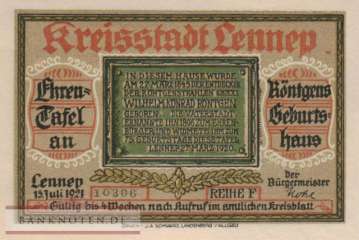 Kreisstadt Lennep
Ehren-
Tafel
an
IN DIESEM HAUSE WURDE
AM 27. MÄRZ 1845 DER ENTDECKER
DER RÖNTGENSTRAHLEN
WILHELM KONRAD RÖNTGEN
GEBOREN
Röntgens
Geburts-
haus
Lennep
15. Juli 1921
10306
REIHE F
Der
Bürgermeister
Gültig bis 4 Wochen nach Aufruf im amtlichen Kreisblatt
BANKNOTEN.DE